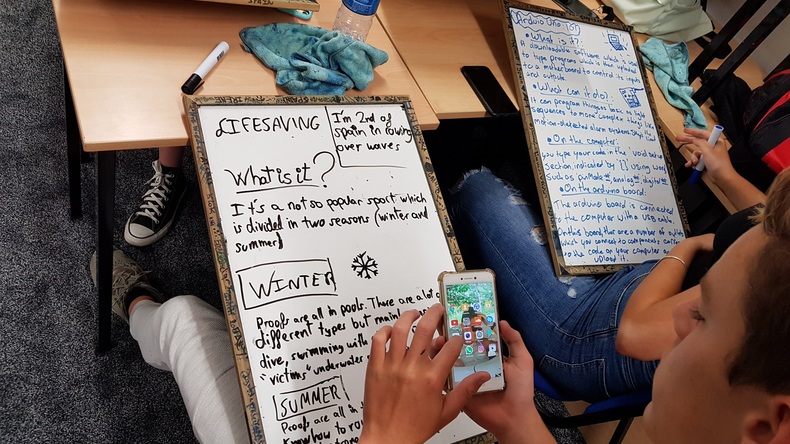 LIFESAVING
I'm 2nd of
spain in rowing
over waves
What is it?
It's a not so popular sport which
is divided in two seasons (winter and
summer)
WINTER
Proofs are all in pools. There are a lot
different types but main
dive, swimming with
"victims" underwater
SUMMER
Proofs are all in
Know how to
Arduino Uno
What is it?:
A downloadable software which is
to type programs which is then
to a motherboard to control its inputs
and outputs.
What can it do?:
It can program things as basic as light
sequences to more complex things like
motion-detected alarm systems
On the computer:
you type your code in the void
section indicated by {} using
such as pinMode, analog, digital
On the arduino board:
The arduino board is connected
to the computer with a USB cable
On this board, there are a number of
which you connect to components
to the code on your computer
upload it.